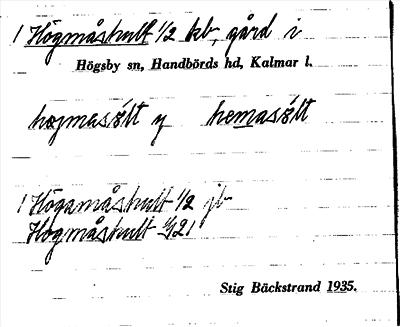 1 Högmåshult 1/2 kb, gård i
Högsby sn, Handbörds hd, Kalmar l.
hemasølt
1 Högamåshult 1/2 jb
Högmåshult
Stig Bäckstrand 1935.